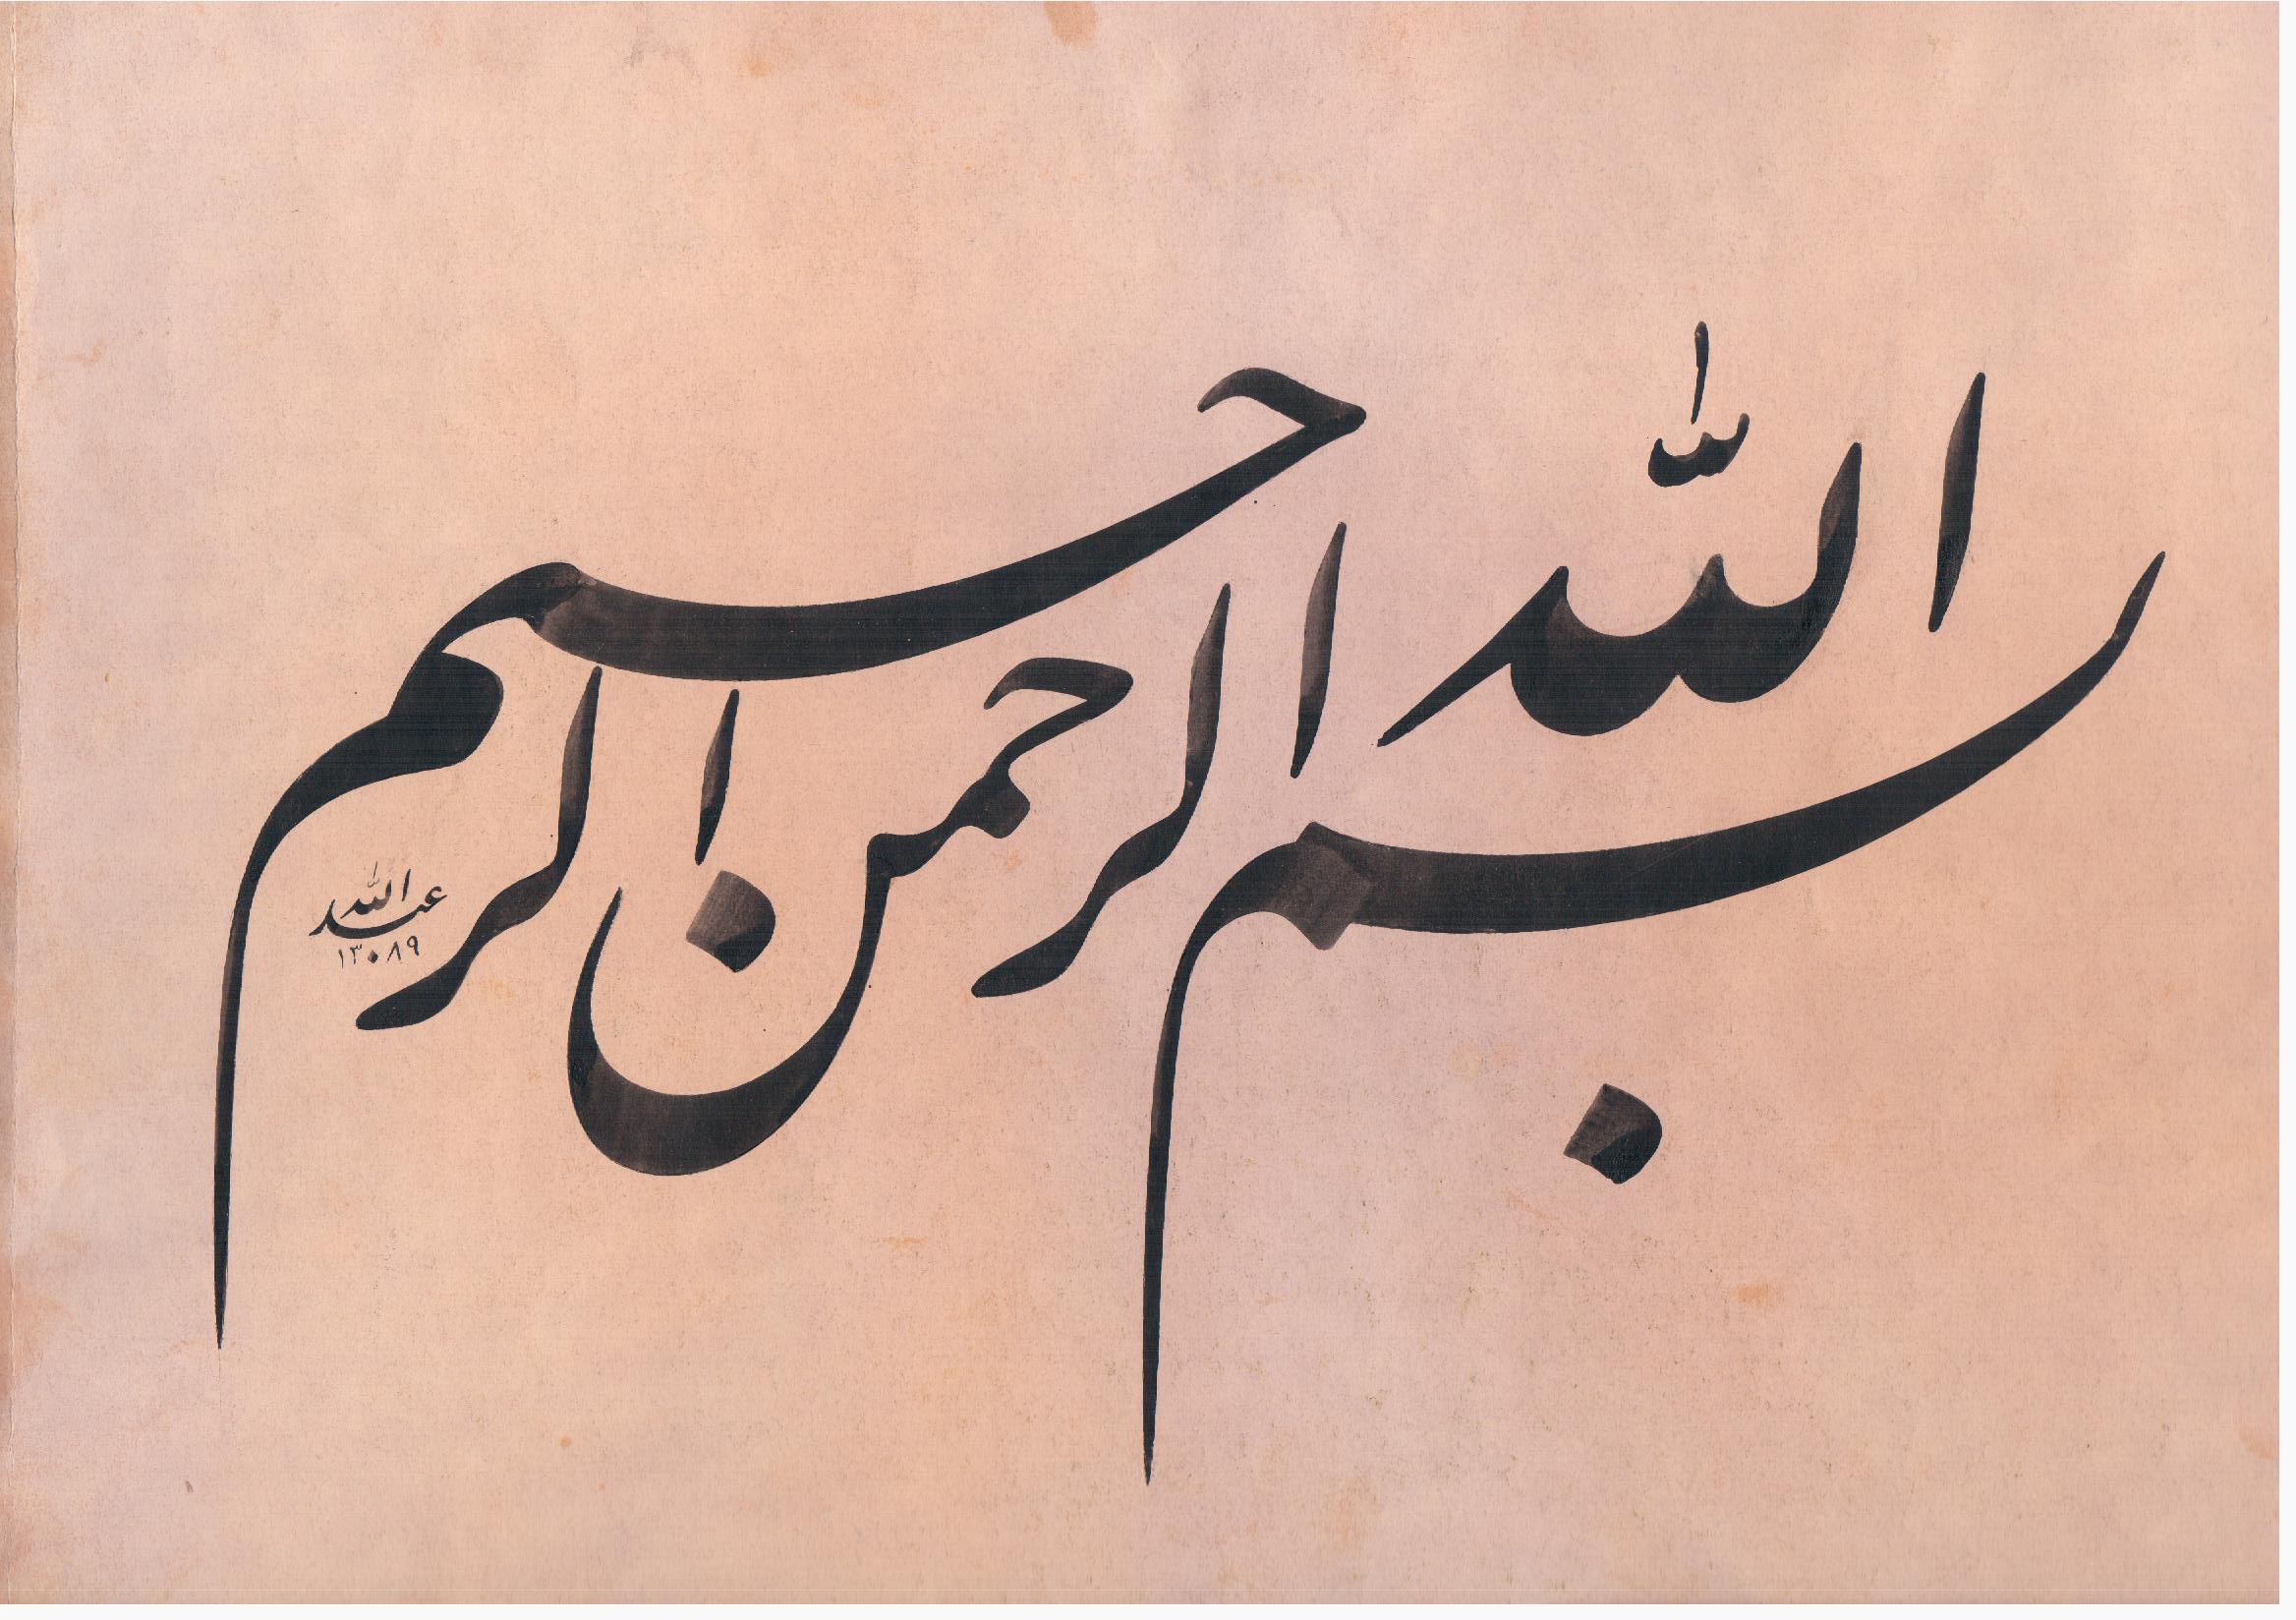 بسم الله الرحمن الرحیم
عبدالله
۱۳۰۸۹